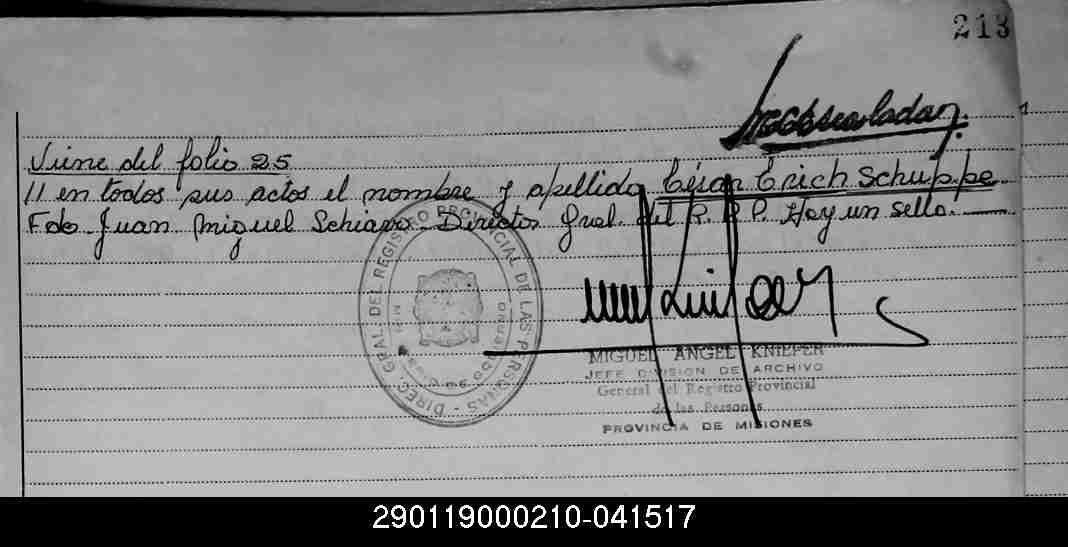 213
Viene del folio 25
// en todos sus actos el nombre y apellido César Erich Schuppe
Fdo. Juan Miguel Schiavo - Director Gral. del R. P. P. Hay un sello.
DIREC. GRAL. DEL REGISTRO PROVINCIAL DE LAS PERSONAS
MIGUEL ANGEL KNIEPER
JEFE DIVISION DE ARCHIVO
General del Registro Provincial
de las Personas
PROVINCIA DE MISIONES
290119000210-041517